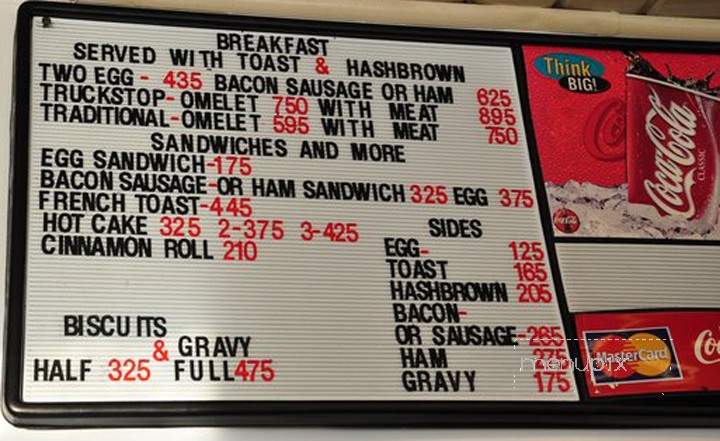 BREAKFAST
SERVED WITH TOAST & HASHBROWN
TWO EGG - 435 BACON SAUSAGE OR HAM 625
TRUCKSTOP-OMELET 750 WITH MEAT 895
TRADITIONAL-OMELET 595 WITH MEAT 750
SANDWICHES AND MORE
EGG SANDWICH-175
BACON SAUSAGE-OR HAM SANDWICH 325 EGG 375
FRENCH TOAST-445
HOT CAKE 325 2-375 3-425
CINNAMON ROLL 210
SIDES
EGG- 125
TOAST 165
HASHBROWN 205
BACON-
OR SAUSAGE-265
HAM 275
GRAVY 175
BISCUITS
& GRAVY
HALF 325 FULL475
Think
BIG!
Coca-Cola
CLASSIC
MasterCard
menupix